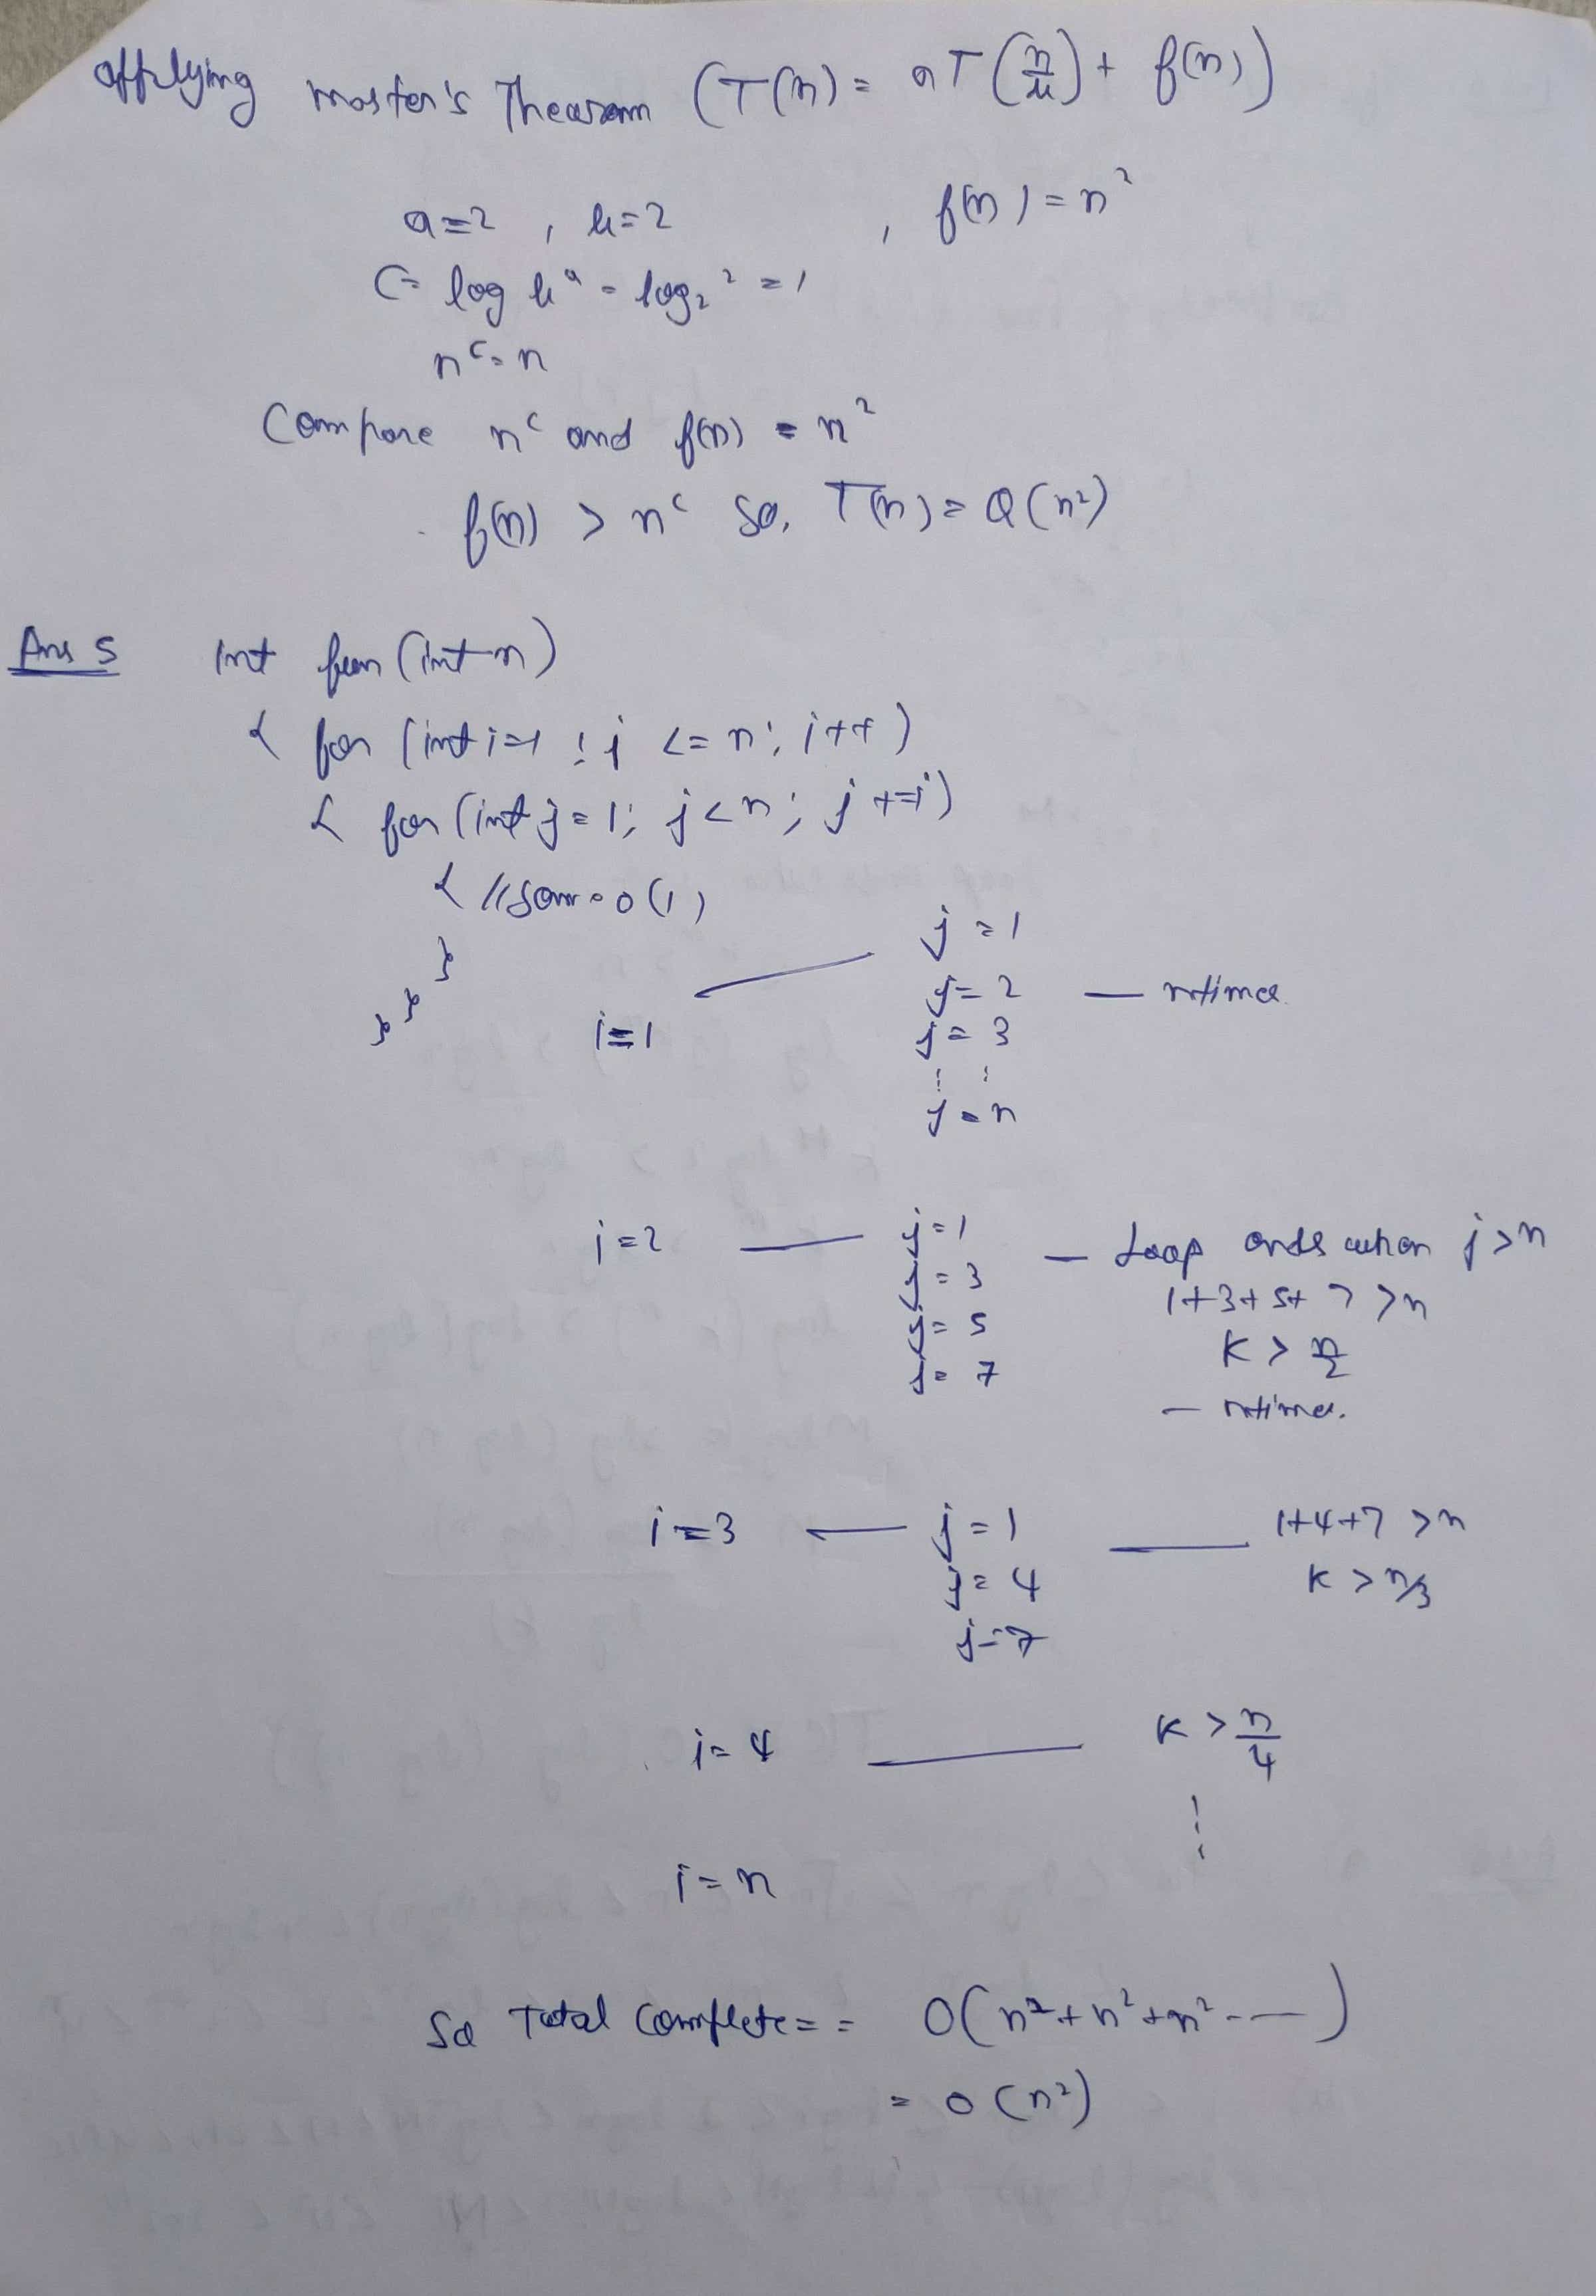 applying master's Thearam (T(n) = aT(n/b) + f(n))
a=2 , b=2 , f(n) = n²
C= log b^a = log₂² = 1
n^c = n
Compare n^c and f(n) = n²
f(n) > n^c So, T(n) = Θ(n²)
Ans 5 int fun (int n)
{ for (int i=1 ; i <= n; i++)
{ for (int j=1; j<n; j+=i)
{ // Som = O(1)
}
} }
j=1
j=2 — n times
i=1 j=3
j=n
i=2 — j=1 — Loop ends when j>n
j=3 1+3+5+7 >n
j=5 K > n/2
j=7 — n times.
i=3 — j=1 — 1+4+7 >n
j=4 K > n/3
j=7
i=4 — K > n/4
i=n
So Total Complete = = O(n²+n²+n² ---)
= O(n²)